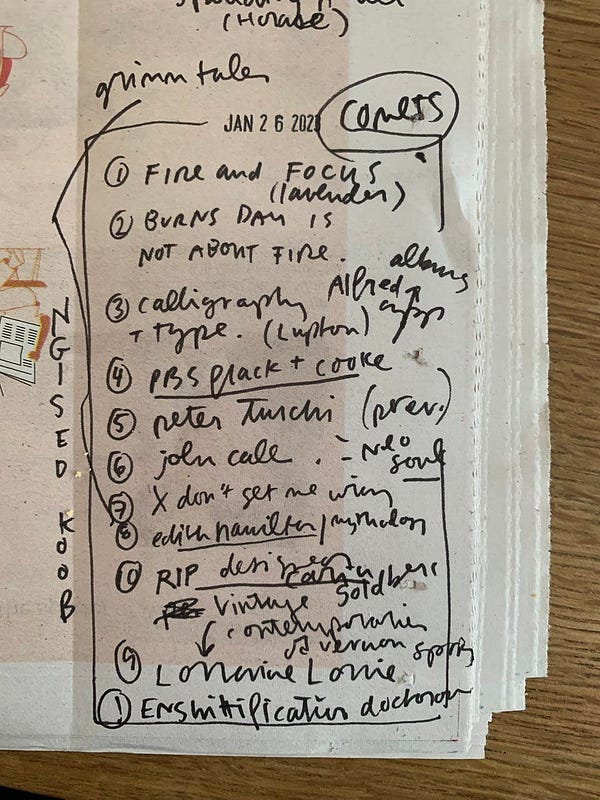 (Horase)
grimm tales
JAN 26 202
comets
① FIRE and FOCUS
(lavender)
② BURNS DAY IS
NOT ABOUT FIRE.
albums
③ calligraphy Alfred
+ type. (Lupton)
④ PBS frack + cooke
⑤ peter Turchi (prev.)
⑥ john cale. = Neo
soul
⑦ X don't get me wrong
⑧ edith hamilton / mythology
⑩ RIP designer
Carin Goldberg
vintage
contemporaries
vernon sports
⑨ Lorraine Louie
① Enshittification doctorow
NGISED KOOB